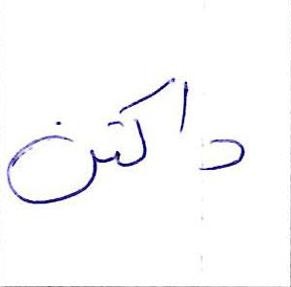 داکتن